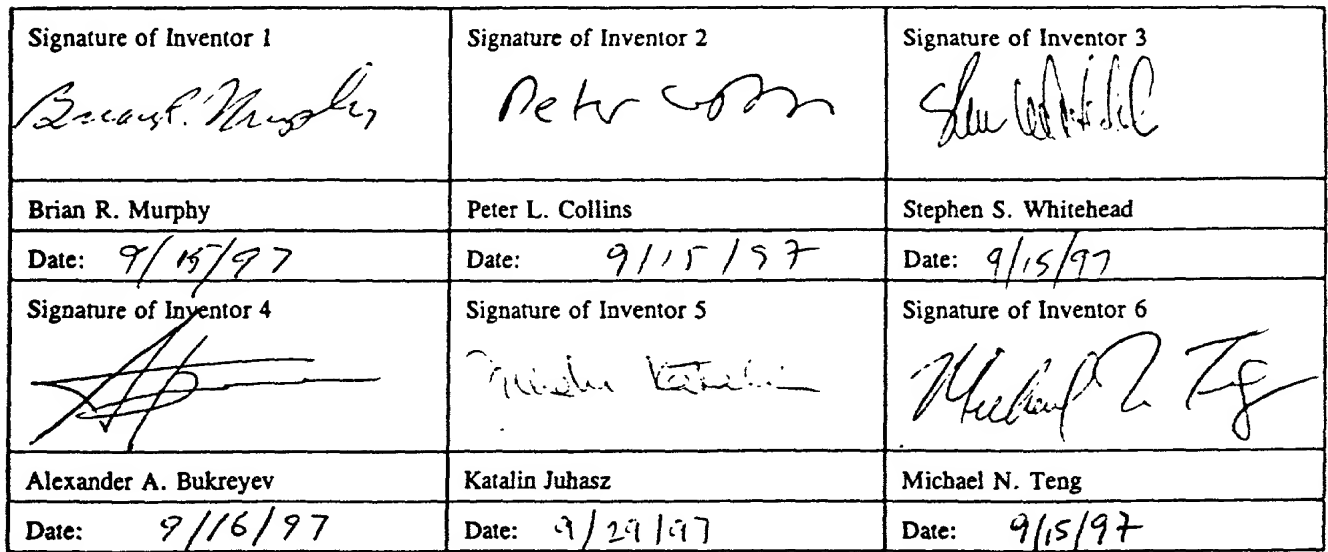 Signature of Inventor 1
Signature of Inventor 2
Signature of Inventor 3
Brian R. Murphy
Peter
Brian R. Murphy
Peter L. Collins
Stephen S. Whitehead
Date: 9/15/97
Date: 9/15/97
Date: 9/15/97
Signature of Inventor 4
Signature of Inventor 5
Signature of Inventor 6
Michael N Teng
Alexander A. Bukreyev
Katalin Juhasz
Michael N. Teng
Date: 9/16/97
Date: 9/29/97
Date: 9/15/97